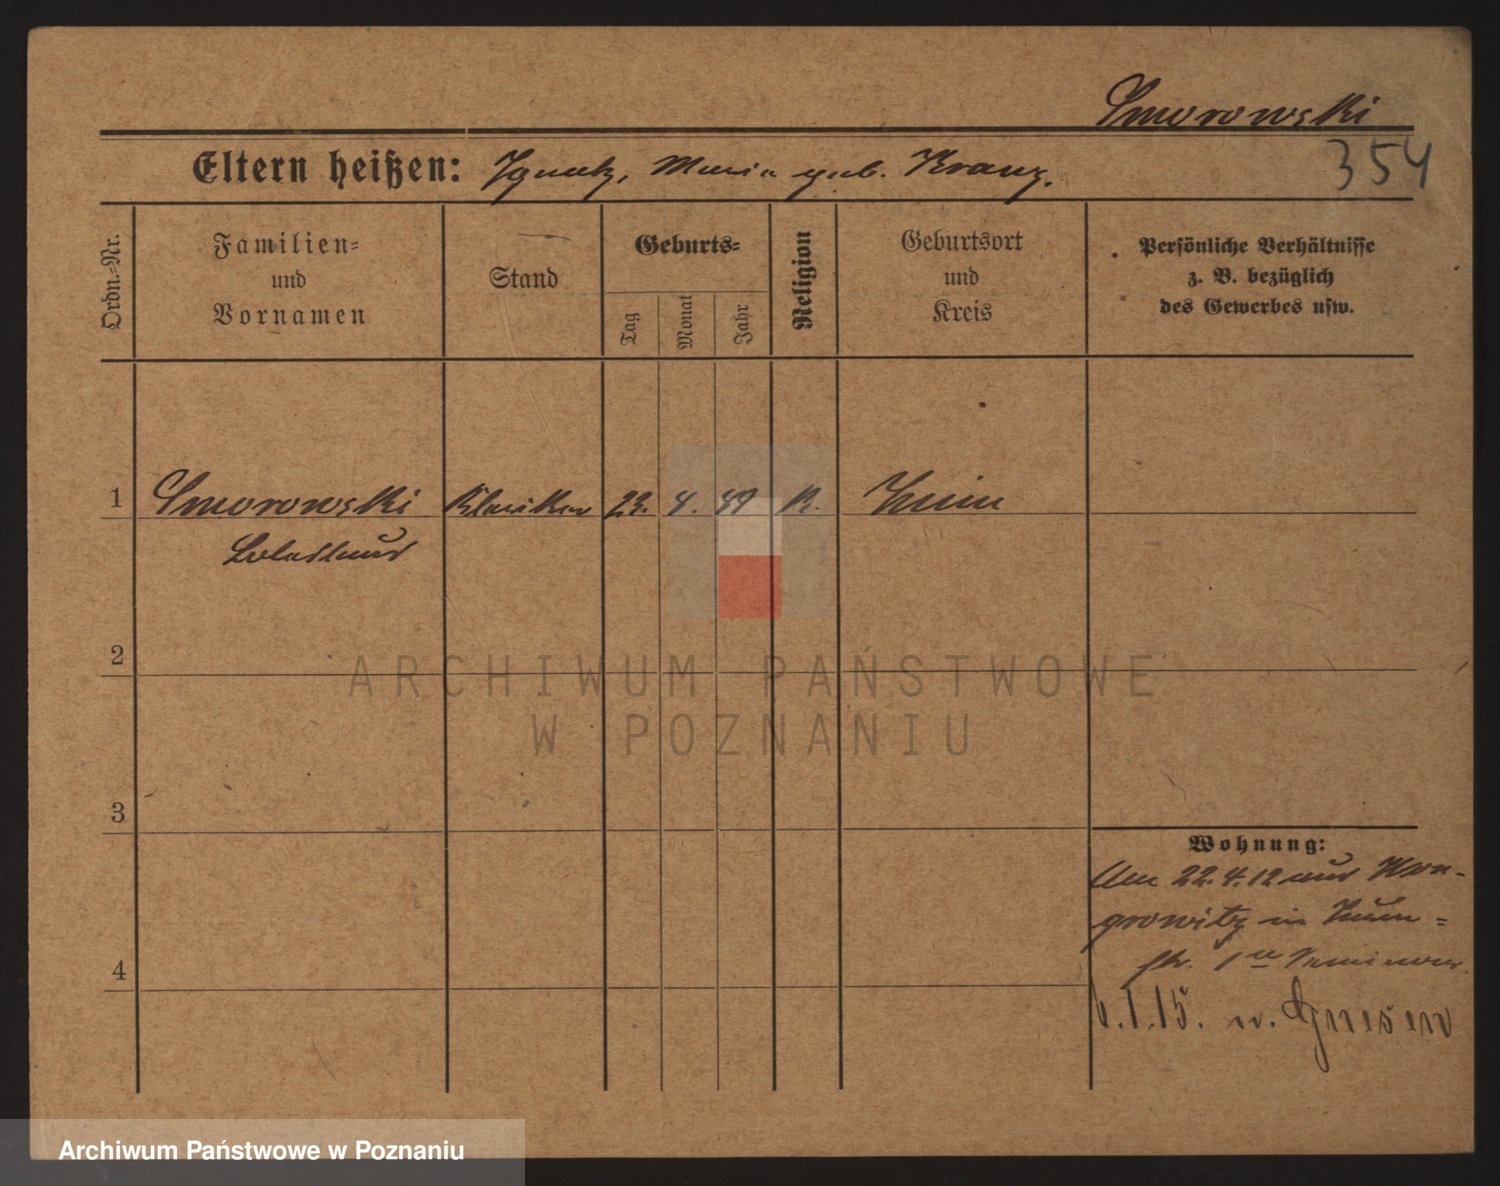 Smorowski
Eltern heißen: Ignatz, Maria geb. Kranz.
354
Ordn.-Nr.
Familien-
und
Vornamen
Stand
Geburts-
Tag
Monat
Jahr
Religion
Geburtsort
und
Kreis
Persönliche Verhältnisse
z. B. bezüglich
des Gewerbes usw.
1
Smorowski Kleriker 23. 4. 89 K. Znin
2
3
4
ARCHIWUM PAŃSTWOWE
W POZNANIU
Wohnung:
Am 22.4.12 aus Won-
growitz in
Seminar
6.1.15. n. Gnesen
Archiwum Państwowe w Poznaniu